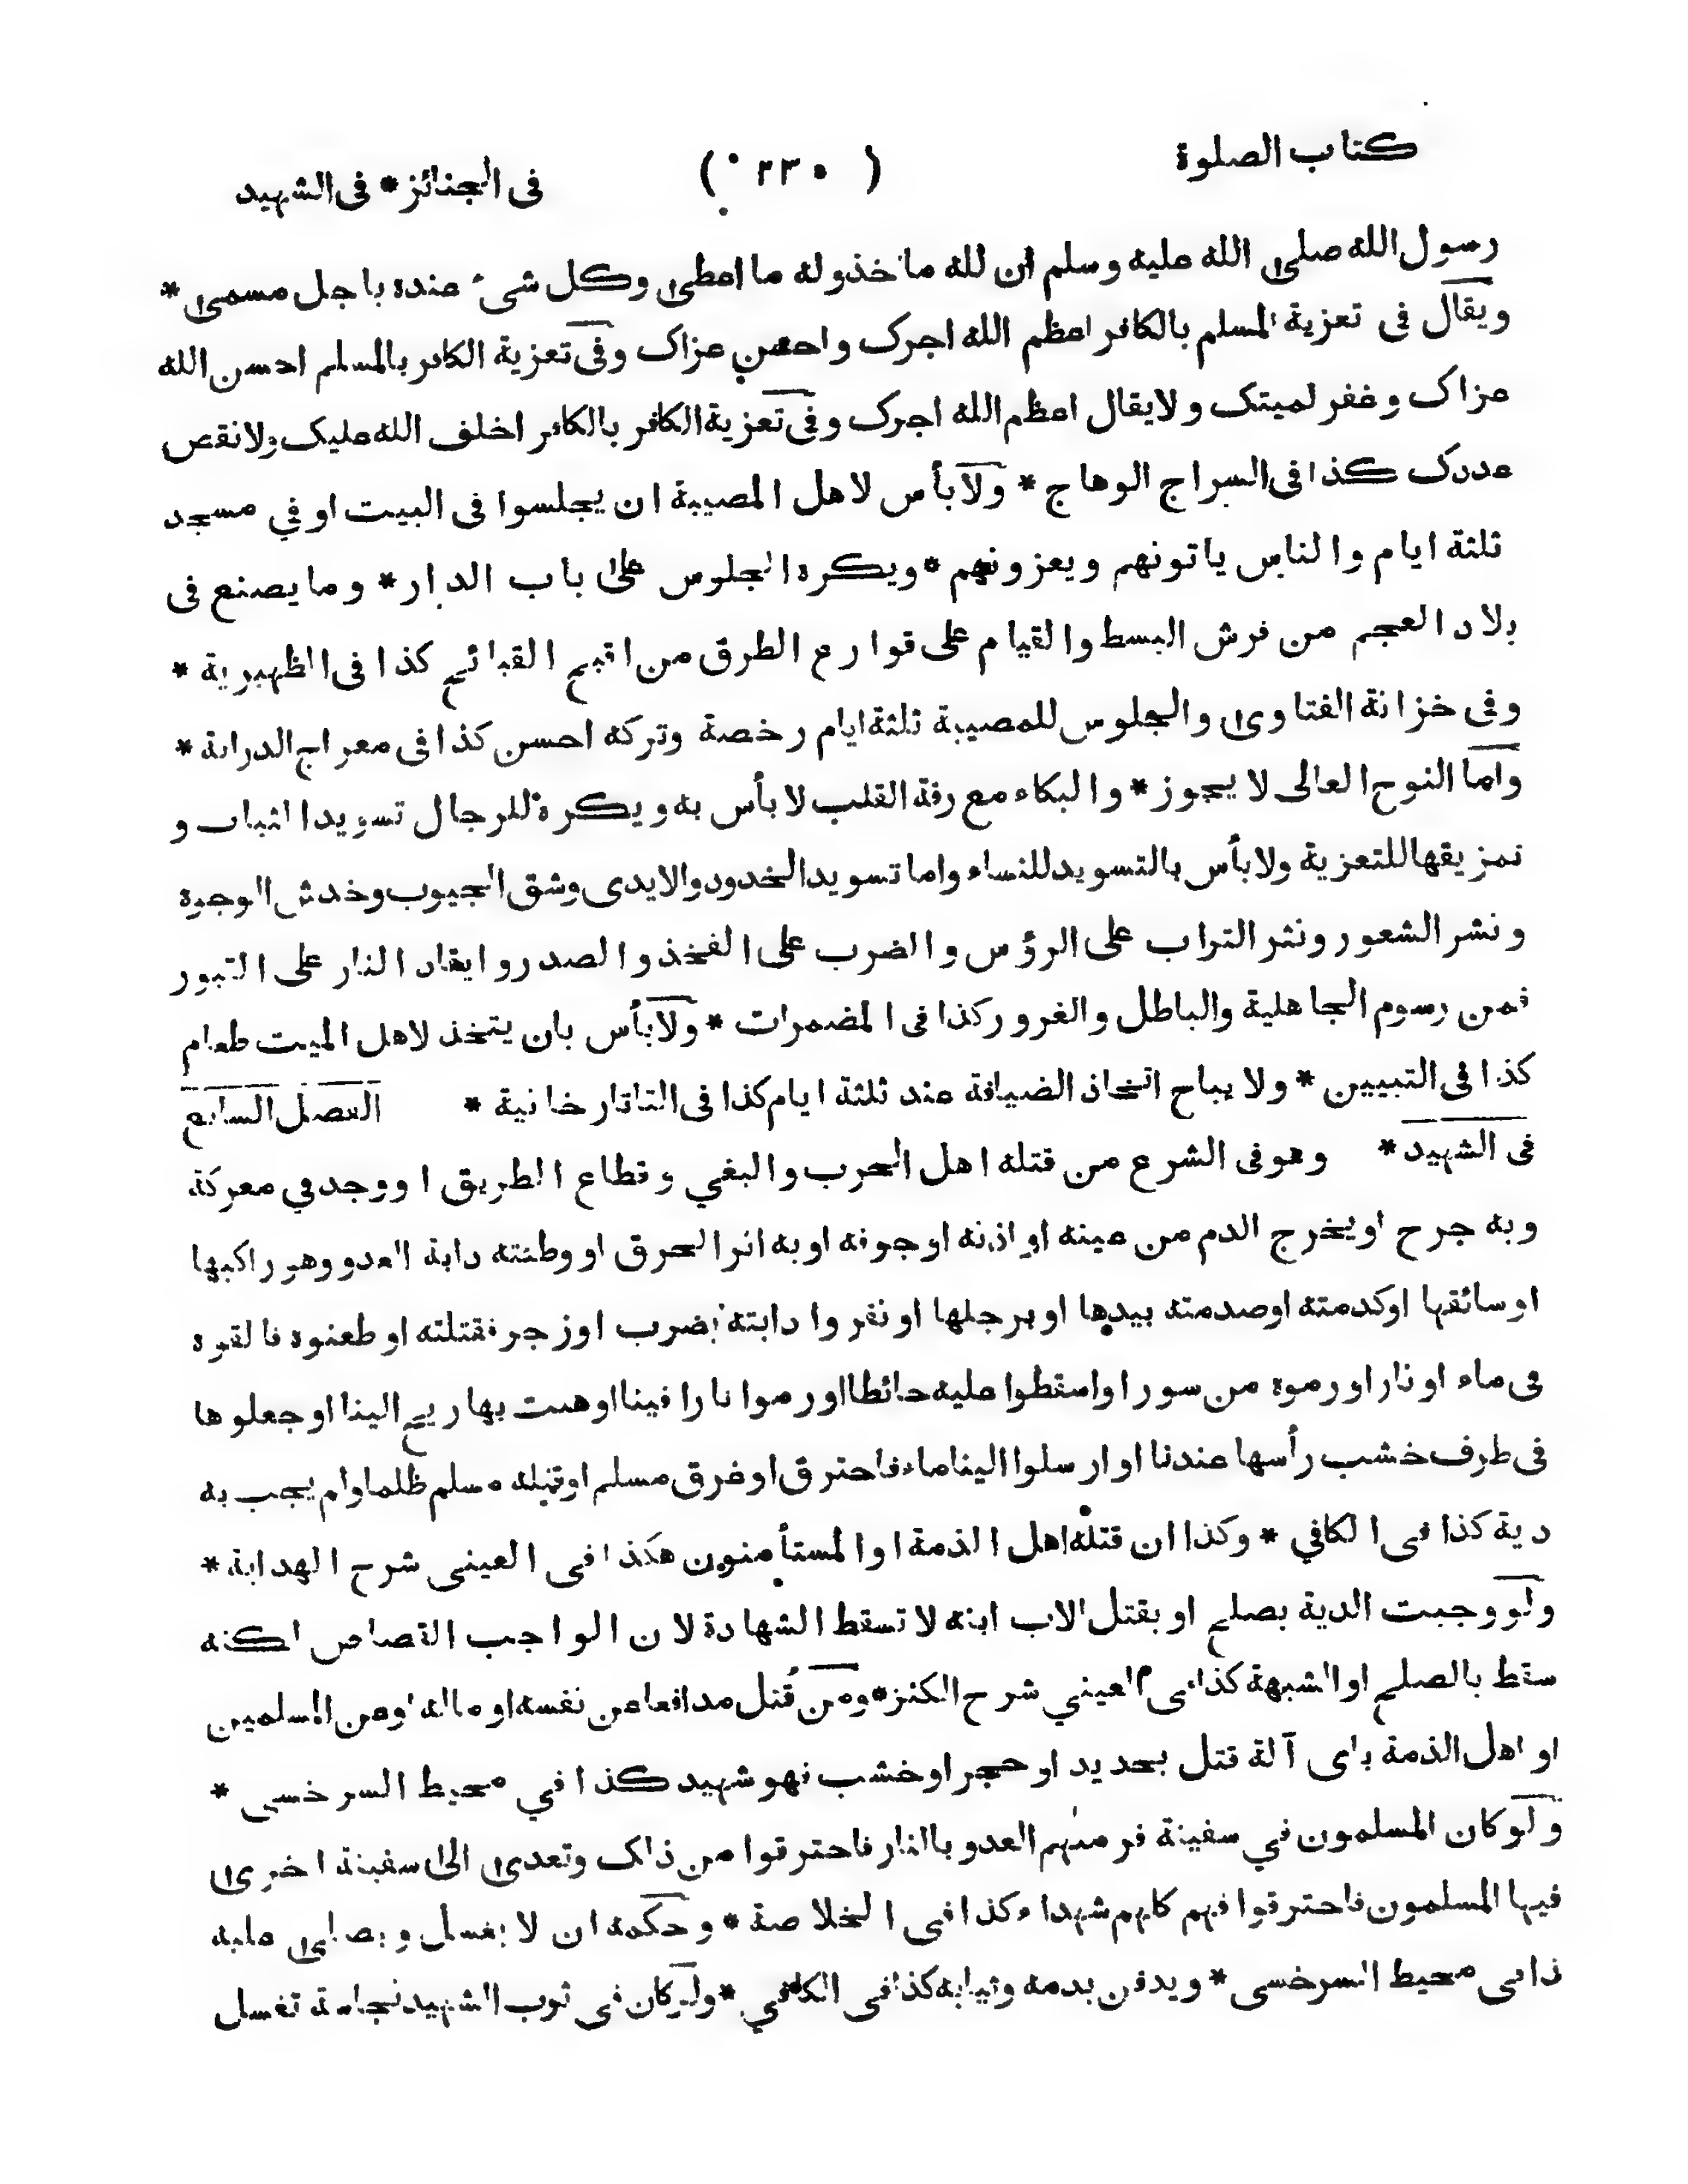 كتاب الصلوة ( ٢٣٠ ) فى الجنائز * فى الشهيد
رسول الله صلى الله عليه وسلم ان لله ما اخذ وله ما اعطى وكل شىء عنده باجل مسمى *
ويقال فى تعزية المسلم بالكافر اعظم الله اجرك واحسن عزاك وفى تعزية الكافر بالمسلم احسن الله
عزاك وغفر لميتك ولا يقال اعظم الله اجرك وفى تعزية الكافر بالكافر اخلف الله عليك ولا نقص
عددك كذا فى السراج الوهاج * ولا بأس لاهل المصيبة ان يجلسوا فى البيت او في مسجد
ثلثة ايام والناس ياتونهم ويعزونهم * ويكره الجلوس على باب الدار * وما يصنع فى
بلاد العجم من فرش البسط والقيام على قوارع الطرق من اقبح القبائح كذا فى الظهيرية *
وفى خزانة الفتاوى والجلوس للمصيبة ثلثة ايام رخصة وتركه احسن كذا فى معراج الدراية *
واما النوح العالى لا يجوز * والبكاء مع رقة القلب لا بأس به ويكره للرجال تسويد الثياب و
تمزيقها للتعزية ولا بأس بالتسويد للنساء واما تسويد الخدود والايدى وشق الجيوب وخدش الوجوه
ونشر الشعور ونثر التراب على الرؤس والضرب على الفخذ والصدر وايقاد النار على القبور
فمن رسوم الجاهلية والباطل والغرور كذا فى المضمرات * ولا بأس بان يتخذ لاهل الميت طعام
كذا فى التبيين * ولا يباح اتخاذ الضيافة عند ثلثة ايام كذا فى التاتارخانية * الفصل السابع
فى الشهيد * وهو فى الشرع من قتله اهل الحرب والبغي وقطاع الطريق او وجد في معركة
وبه جرح او يخرج الدم من عينه او اذنه او جوفه او به اثر الحرق او وطئته دابة العدو وهو راكبها
او سائقها او كدمته او صدمته بيدها او برجلها او نفروا دابته بضرب او زجر فقتلته او طعنوه فالقوه
فى ماء او نار او رموه من سور او اسقطوا عليه حائطا او رموا نارا فينا او هبت بها ريح الينا او جعلوها
فى طرف خشب رأسها عندنا او ارسلوا الينا ماء فاحترق او غرق مسلم او قتله مسلم ظلما ولم يجب به
دية كذا فى الكافي * وكذا ان قتله اهل الذمة او المستأمنون هكذا فى العينى شرح الهداية *
ولو وجبت الدية بصلح او بقتل الاب ابنه لا تسقط الشهادة لان الواجب القصاص لكنه
سقط بالصلح او الشبهة كذا فى العيني شرح الكنز * ومن قُتل مدافعا عن نفسه او ماله او عن المسلمين
او اهل الذمة باى آلة قتل بحديد او حجر او خشب فهو شهيد كذا في محيط السرخسى *
ولو كان المسلمون في سفينة فرمىهم العدو بالنار فاحترقوا من ذلك وتعدى الى سفينة اخرى
فيها المسلمون فاحترقوا فهم كلهم شهداء كذا فى الخلاصة * وحكمه ان لا يغسل ويصلى عليه
ذا فى محيط السرخسى * ويدفن بدمه وثيابه كذا فى الكافي * ولو كان فى ثوب الشهيد نجاسة تغسل